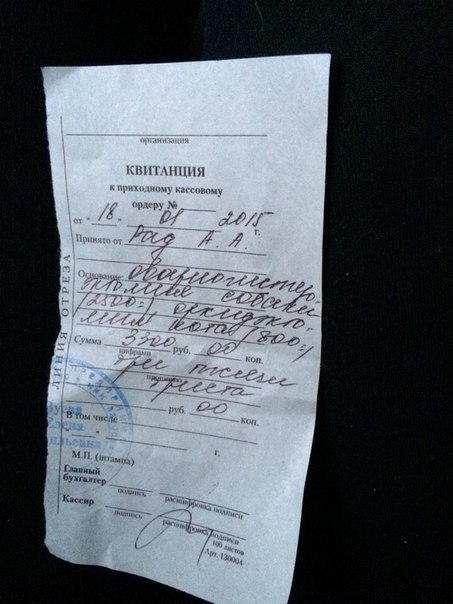 организация
КВИТАНЦИЯ
к приходному кассовому
ордеру №
от " 18 " 01 2015 г.
Принято от Рад А. А.
Основание: овариогистерэ-
ктомия собаки
/2500=/ орхидэкто-
мия кота /800=/
Сумма 3300 руб. 00 коп.
цифрами
три тысячи
прописью
триста
руб. 00 коп.
В том числе
" г.
М.П. (штампа)
Главный
бухгалтер
подпись расшифровка подписи
Кассир
подпись расшифровка подписи
100 листов
Арт. 130004
ЛИНИЯ ОТРЕЗА